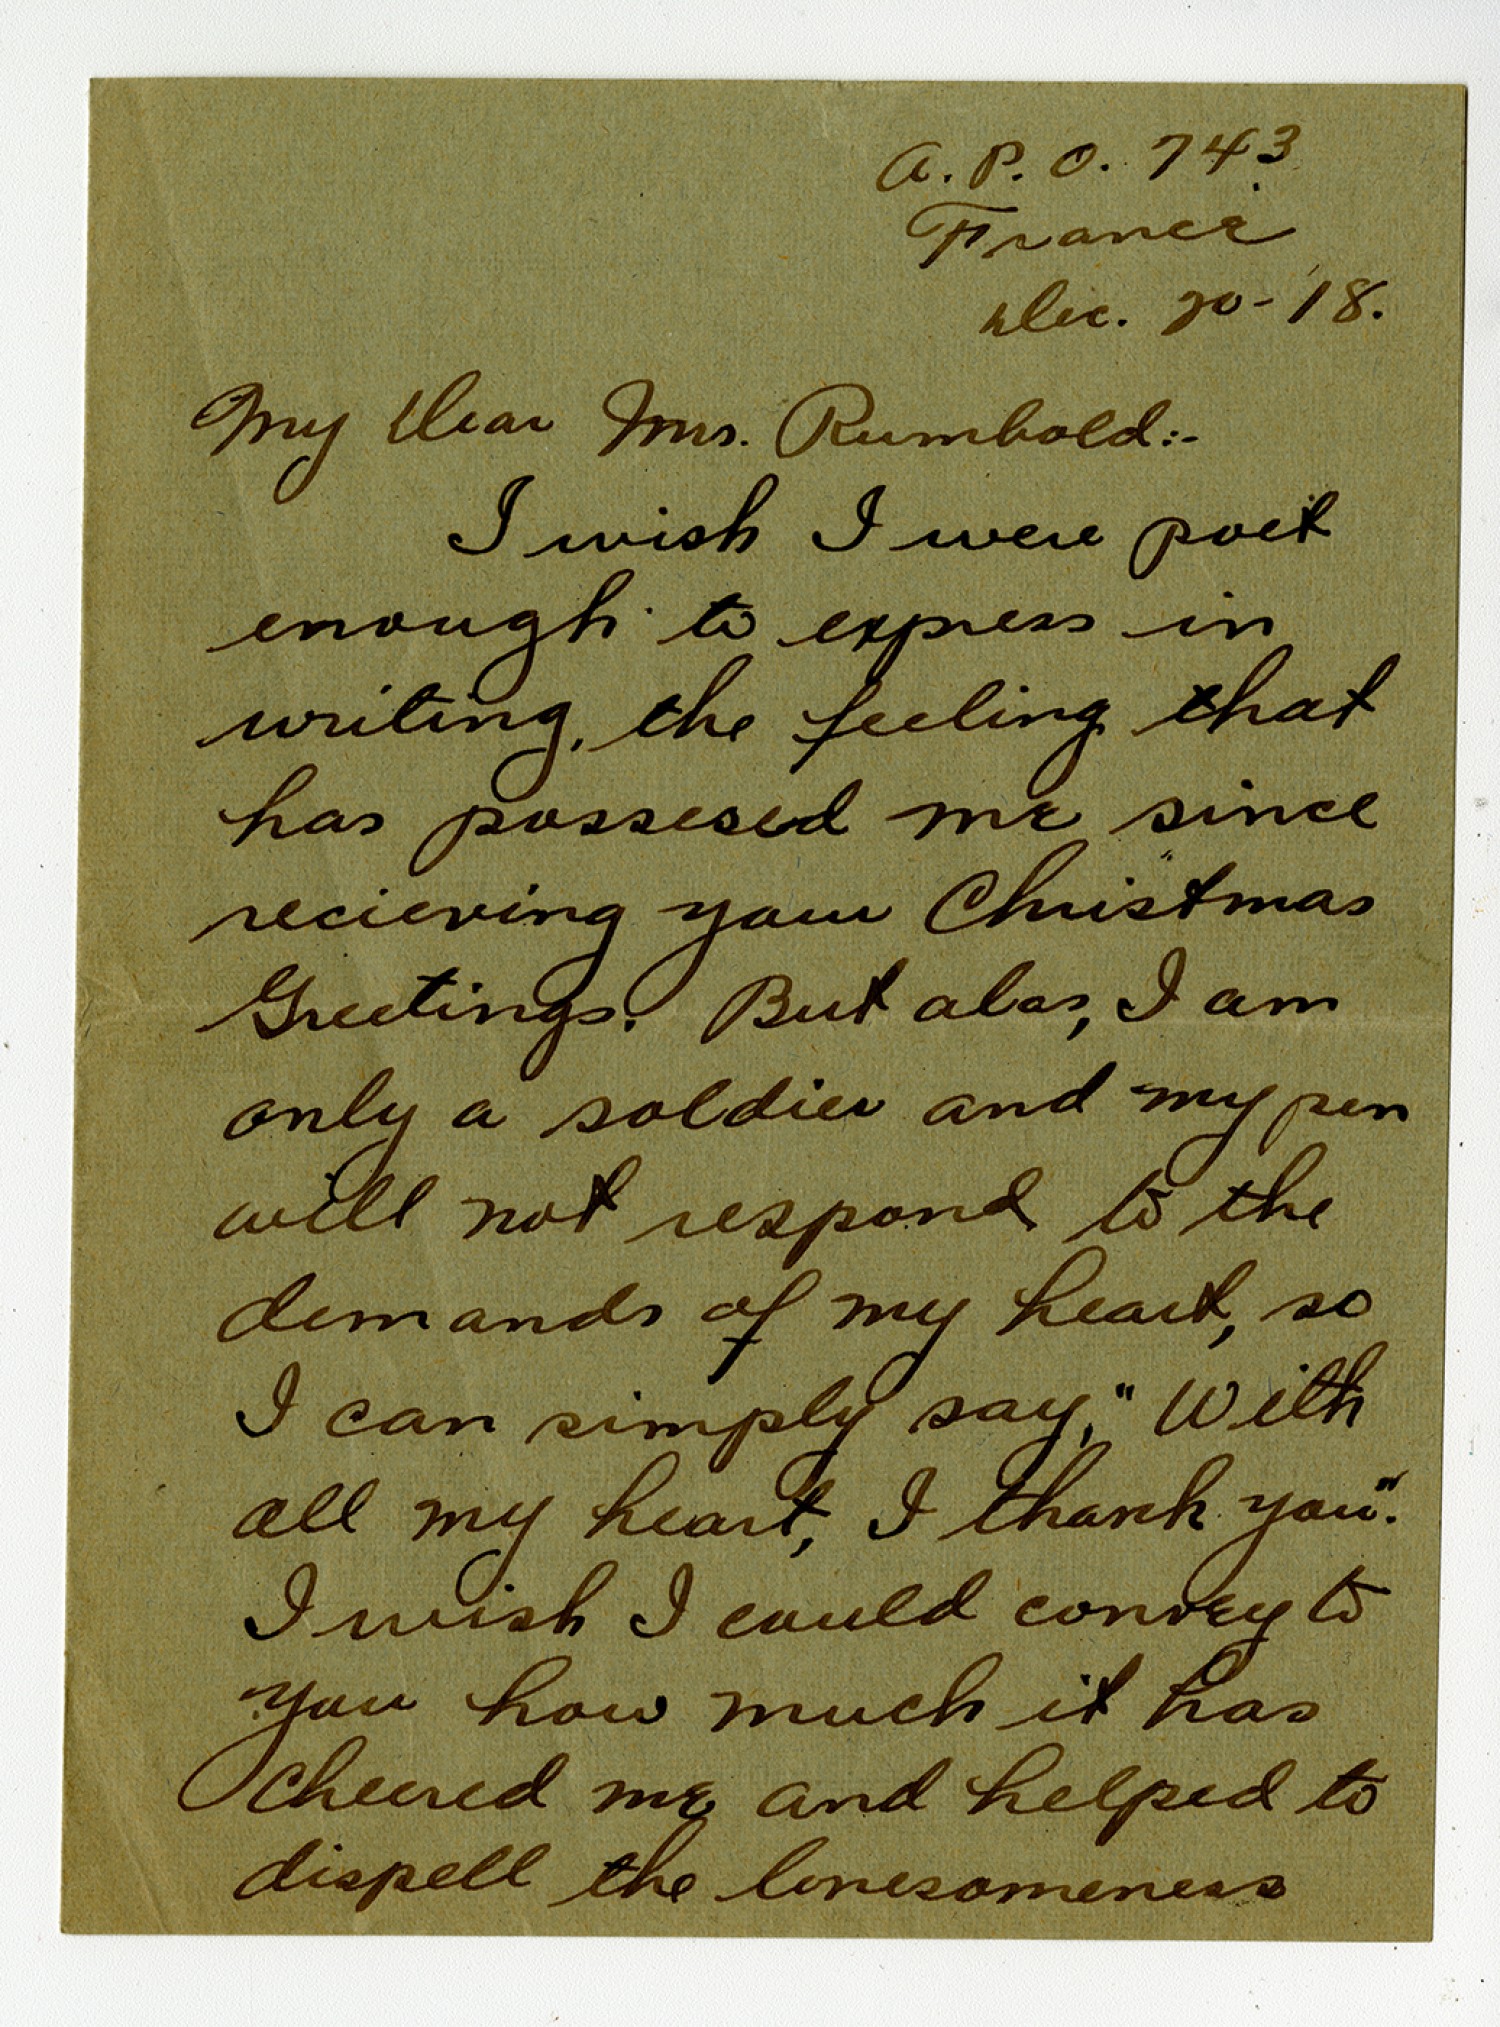 A. P. O. 743
France
Dec. 20-'18.
My Dear Mrs. Rumbold:-
I wish I were poet
enough to express in
writing, the feeling that
has possesed me since
recieving your Christmas
Greetings. But alas, I am
only a soldier and my pen
will not respond to the
demands of my heart, so
I can simply say, "With
all my heart, I thank you".
I wish I could convey to
you how much it has
cheered me and helped to
dispell the lonesomeness